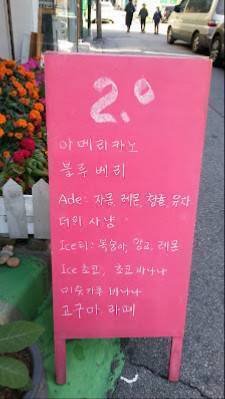 2.0
아메리카노
블루베리
Ade: 자몽, 레몬, 청포도, 유자
더위사냥
Ice티: 복숭아, 망고, 레몬
Ice 초코, 초코바나나
미숫가루 바나나
고구마 라떼